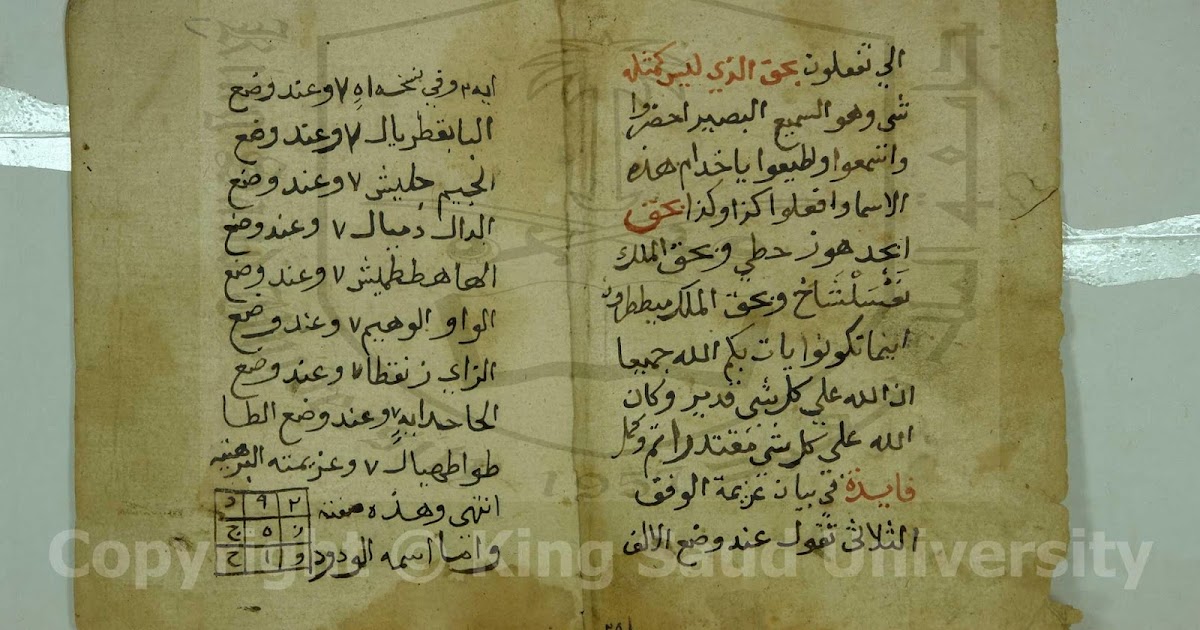 الي تفعلون بحق الذي ليس كمثله
شي وهو السميع البصير احضروا
واسمعوا واطيعوا ياخدام هذه
الاسما وافعلوا كذا وكذا بحق
ابجد هوز حطي وبحق الملك
وبحق الملك ميططرون
اينما تكونوا يات بكم الله جميعا
ان الله علي كل شي قدير وكان
الله علي كل شي مقتدرا تم وكمل
فايدة في بيان عزيمة الوفق
الثلاثي تقول عند وضع الالف
ايه وفي نسخه اه ٧ وعند وضع
البا بقطريال ٧ وعند وضع
الجيم جليش ٧ وعند وضع
الدال دميال ٧ وعند وضع
الها هططميش ٧ وعند وضع
الواو الوهيم ٧ وعند وضع
الزاي زنقطا ٧ وعند وضع
الحا ٧ وعند وضع الطا
طواطهيال ٧ وعزيمته البرهتيه
انتهي وهذه صفته
واما اسمه الودود
٢ ٩ د
ز ٥ ج
و ١ ح
Copyright © King Saud University